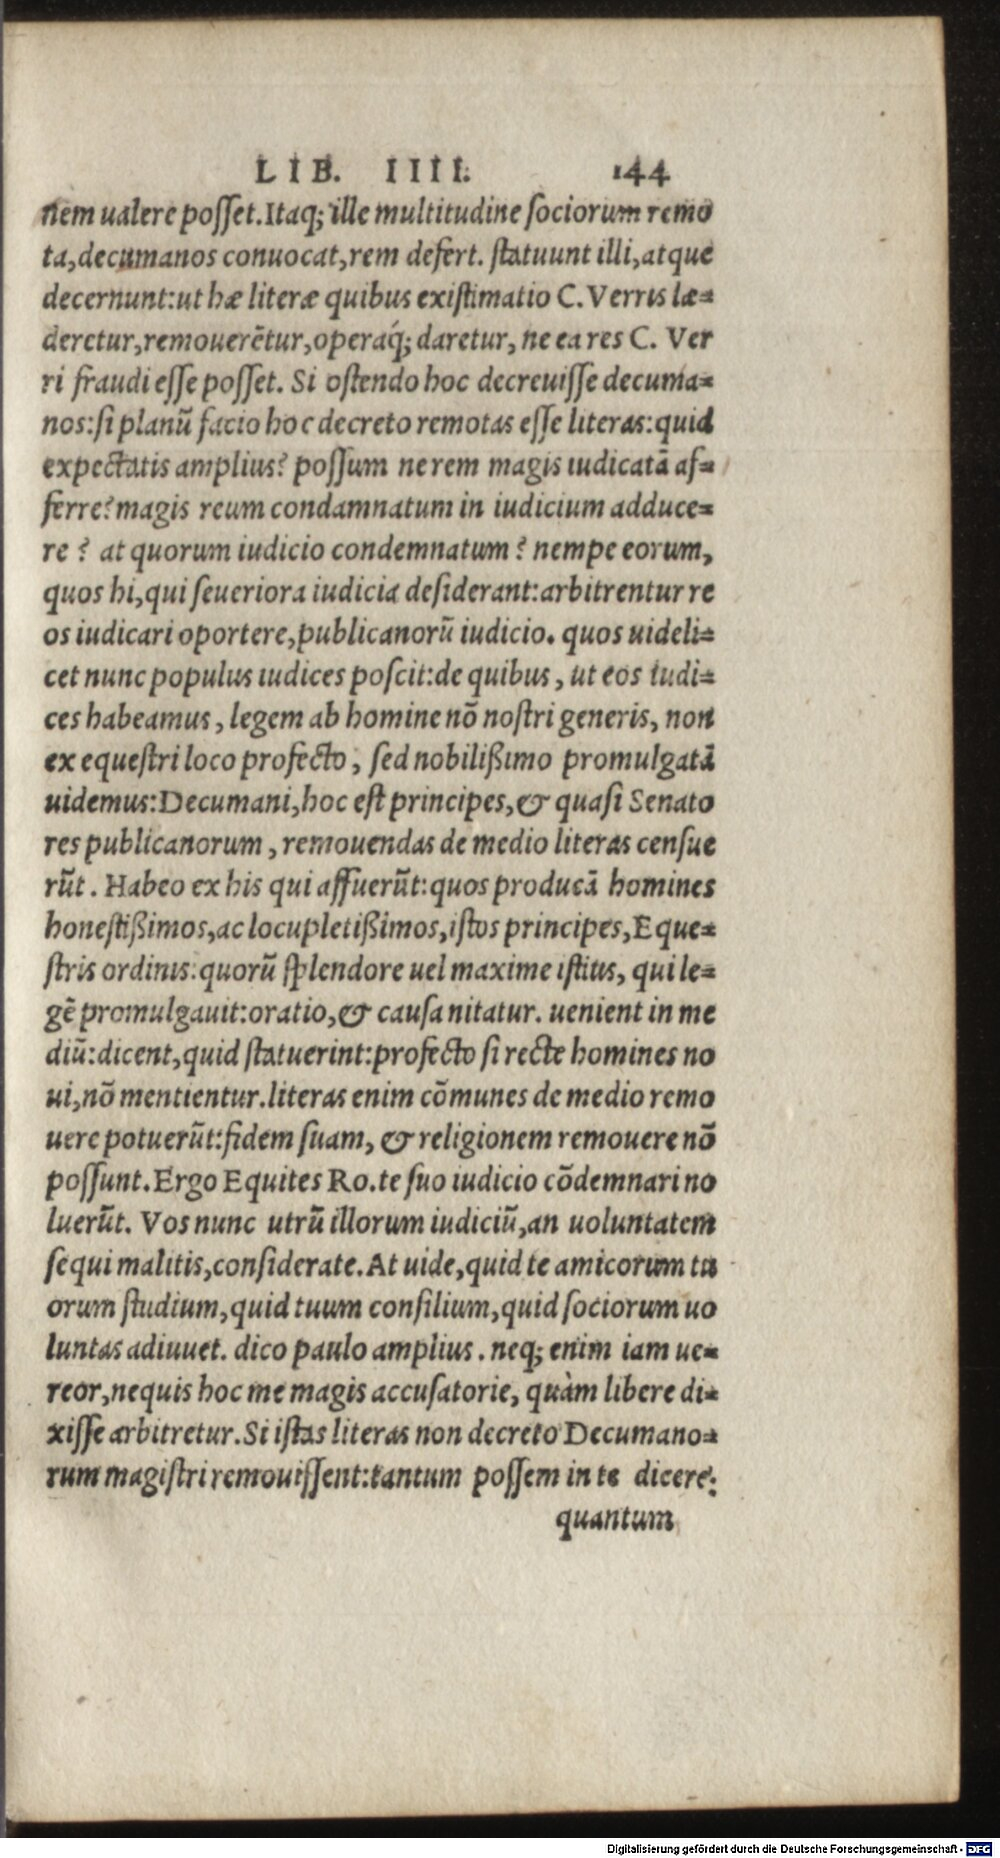 LIB. IIII. 144
nem ualere posset. Itaq; ille multitudine sociorum remo
ta, decumanos conuocat, rem defert. statuunt illi, atque
decernunt: ut hæ literæ quibus existimatio C. Verris læ=
deretur, remouerẽtur, operaq́; daretur, ne ea res C. Ver
ri fraudi esse posset. Si ostendo hoc decreuisse decuma=
nos: si planũ facio hoc decreto remotas esse literas: quid
expectatis amplius? possum ne rem magis iudicatã af=
ferre? magis reum condamnatum in iudicium adduce=
re? at quorum iudicio condemnatum? nempe eorum,
quos hi, qui seueriora iudicia desiderant: arbitrentur re
os iudicari oportere, publicanorũ iudicio. quos uideli=
cet nunc populus iudices poscit: de quibus, ut eos iudi=
ces habeamus, legem ab homine nõ nostri generis, non
ex equestri loco profecto, sed nobilißimo promulgatã
uidemus: Decumani, hoc est principes, & quasi Senato
res publicanorum, remouendas de medio literas censue
rũt. Habeo ex his qui affuerũt: quos producã homines
honestißimos, ac locupletißimos, istos principes, Eque=
stris ordinis: quorũ splendore uel maxime istius, qui le=
gẽ promulgauit: oratio, & causa nitatur. uenient in me
diũ: dicent, quid statuerint: profecto si recte homines no
ui, nõ mentientur. literas enim cõmunes de medio remo
uere potuerũt: fidem suam, & religionem remouere nõ
possunt. Ergo Equites Ro. te suo iudicio cõdemnari no
luerũt. Vos nunc utrũ illorum iudiciũ, an uoluntatem
sequi malitis, considerate. At uide, quid te amicorum tu
orum studium, quid tuum consilium, quid sociorum uo
luntas adiuuet. dico paulo amplius. neq; enim iam ue=
reor, nequis hoc me magis accusatorie, quàm libere di=
xisse arbitretur. Si istas literas non decreto Decumano=
rum magistri remouissent: tantum possem in te dicere:
quantum
Digitalisierung gefördert durch die Deutsche Forschungsgemeinschaft - DFG